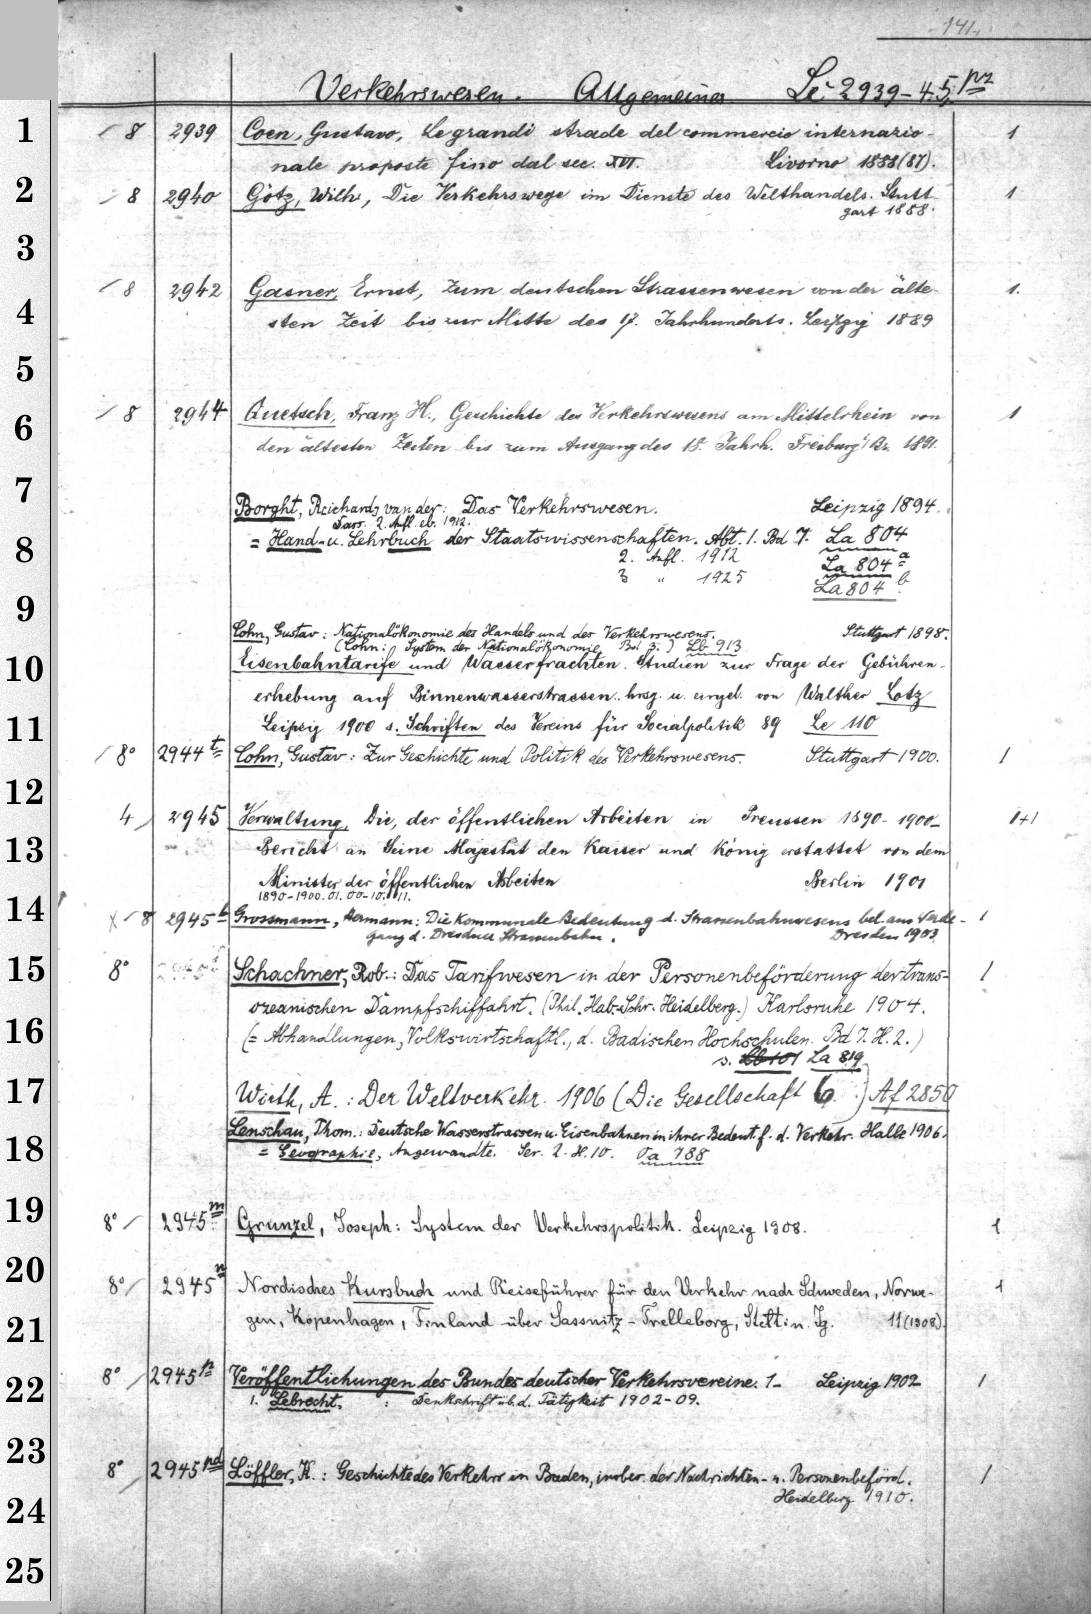 141.
Verkehrswesen. Allgemeines. Le: 2939-45 pz
1 8 2939 Coen, Gustavo, Le grandi strade del commercio internazio- 1
nale proposte fino dal sec. XVI. Livorno 1888(87).
2 8 2940 Götz, Wilh., Die Verkehrswege im Dienste des Welthandels. Stutt- 1
gart 1888.
3
8 2942 Gasner, Ernst, Zum deutschen Strassenwesen von der älte- 1.
4 sten Zeit bis zur Mitte des 17. Jahrhunderts. Leipzig 1889
5
6 8 2944 Quetsch, Franz H., Geschichte des Verkehrswesens am Mittelrhein von 1
den ältesten Zeiten bis zum Ausgang des 18. Jahrh. Freiburg i/Br. 1891.
7
Borght, Reichard van der: Das Verkehrswesen. Leipzig 1894.
Dass. 2. Afl. eb. 1912.
8 = Hand- u. Lehrbuch der Staatswissenschaften. Abt. 1. Bd 7. La 804
2. Aufl. 1912 La 804 a
3 " 1925 La 804 b.
9
Cohn, Gustav: Nationalökonomie des Handels und des Verkehrswesens. Stuttgart 1898.
(Cohn: System der Nationalökonomie Bd 3.) Lb 913
10 Eisenbahntarife und Wasserfrachten. Studien zur Frage der Gebühren-
erhebung auf Binnenwasserstrassen. hrsg. u. eingel. von Walther Lotz
11 Leipzig 1900 s. Schriften des Vereins für Socialpolitik 89 Le 110
8° 2944 t Cohn, Gustav: Zur Geschichte und Politik des Verkehrswesens. Stuttgart 1900. 1
12
4 2945 Verwaltung, Die, der öffentlichen Arbeiten in Preussen 1890-1900- 1+1
13 Bericht an Seine Majestät den Kaiser und König erstattet von dem
Minister der öffentlichen Arbeiten Berlin 1901
1890-1900. 01. 00-10. 11.
14 8 2945 b Grossmann, Hermann: Die kommunale Bedeutung d. Strassenbahnwesens bel. am Werde- 1
gang d. Dresdner Strassenbahn. Dresden 1903
15 8° Schachner, Rob.: Das Tarifwesen in der Personenbeförderung der trans- 1
ozeanischen Dampfschiffahrt. (Phil. Hab.-Schr. Heidelberg.) Karlsruhe 1904.
16 (= Abhandlungen, Volkswirtschaftl., d. Badischen Hochschulen. Bd 7. H. 2.)
s. Lb 101 La 819
17 Wirth, A.: Der Weltverkehr. 1906 (Die Gesellschaft 6.) Af 2850
Lenschau, Thom.: Deutsche Wasserstrassen u. Eisenbahnen in ihrer Bedeut. f. d. Verkehr. Halle 1906.
18 = Geographie, Angewandte. Ser. 2. H. 10. Oa 788
19 8° 2945 m Grunzel, Joseph: System der Verkehrspolitik. Leipzig 1908. 1
20 8° 2945 n Nordisches Kursbuch und Reiseführer für den Verkehr nach Schweden, Norwe- 1
21 gen, Kopenhagen, Finland über Sassnitz-Trelleborg, Stettin. Jg. 11(1908).
22 8° 2945 p Veröffentlichungen des Bundes deutscher Verkehrsvereine. 1- Leipzig 1902 1
1. Lebrecht, : Denkschrift üb. d. Tätigkeit 1902-09.
23
8° 2945 pd Löffler, K.: Geschichte des Verkehrs in Baden, insbes. der Nachrichten- u. Personenbeförd. 1
24 Heidelberg 1910.
25